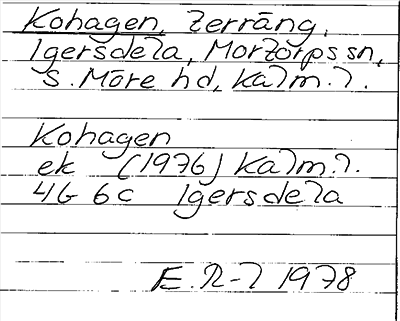 Kohagen, terräng,
Igersdela, Mortorps sn,
S. Möre hd, Kalm. l.
Kohagen
ek (1976) Kalm. l.
4G 6c Igersdela
E. R-l 1978